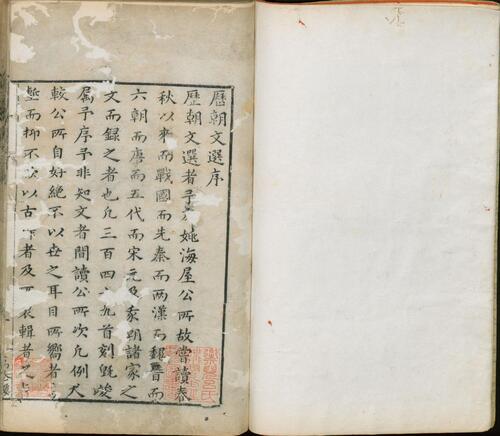 歷朝文選序
歷朝文選者予 姚海屋公所故嘗讀春
秋以來而戰國而先秦而兩漢而魏晉而
六朝而唐而五代而宋元及我朝諸家之
文而録之者也凡三百四十九首刻旣竣
屬予序予非知文者間讀公所次凡例大
較公所自好絶不以世之耳目所嚮者
而抑不以古作者及所衣輯者之